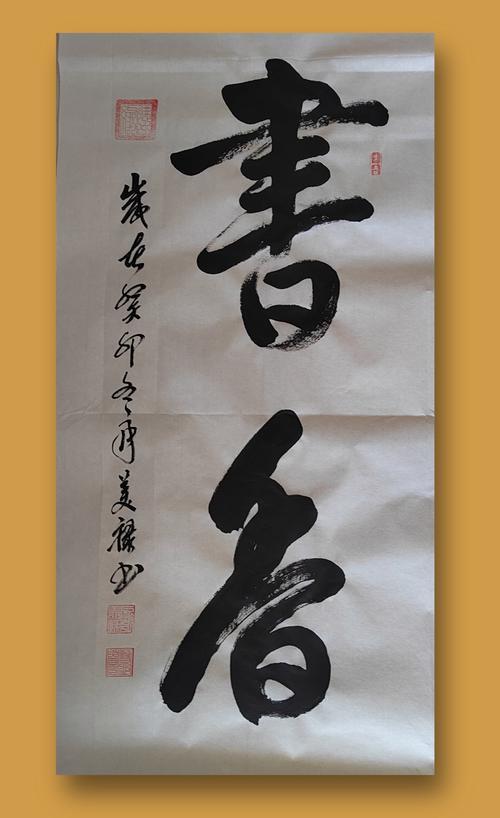 書香
歲在癸卯冬月美祿书